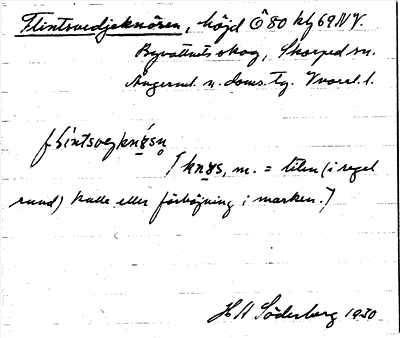 Flintsvedjeknösen, höjd Ö 80 kfg 69 NV.
Byvattnets skog, Skorped sn.
Ångerml. n. doms. tg. Vvarel. l.
[knøs, m. = liten (i regel
rund) kulle eller förhöjning i marken.]
H A Söderberg 1930